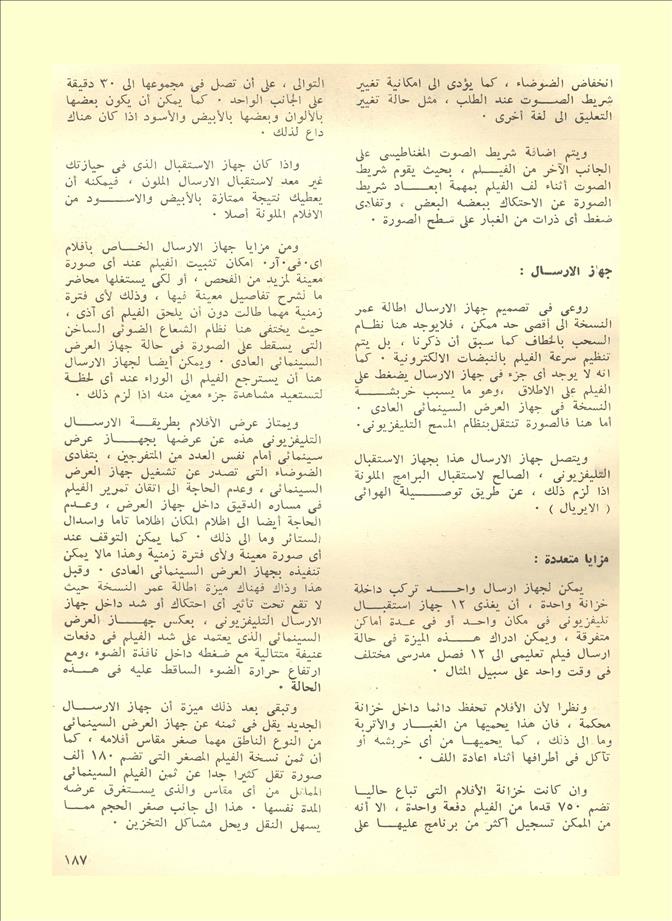 انخفاض الضوضاء ، كما يؤدى الى امكانية تغيير
شريط الصـــوت عند الطلب ، مثل حالة تغيير
التعليق الى لغة أخرى ٠
ويتم اضافة شريط الصوت المغناطيسى على
الجانب الآخر من الفيـــلم ، بحيث يقوم شريط
الصوت أثناء لف الفيلم بمهمة ابعـــاد شريط
الصورة عن الاحتكاك ببعضه البعض ، وتفادى
ضغط أى ذرات من الغبار على سطح الصورة ٠
جهاز الارســـال :
روعى فى تصميم جهاز الارسال اطالة عمر
النسخة الى أقصى حد ممكن ، فلايوجد هنا نظـام
السحب بالخطاف كما سبق أن ذكرنا ، بل يتم
تنظيم سرعة الفيلم بالنبضات الالكترونية ٠ كما
انه لا يوجد أى جزء فى جهاز الارسال يضغط على
الفيلم على الاطلاق ،وهو ما يسبب خربشـــة
النسخة فى جهاز العرض السينمائى العادى ٠
أما هنا فالصورة تنتقل بنظام المسح التليفزيونى٠
ويتصل جهاز الارسال هذا بجهاز الاستقبال
التليفزيونى ، الصالح لاستقبال البرامج الملونة
اذا لزم ذلك ، عن طريق توصـــيلة الهوائى
( الايريال ) ٠
مزايا متعددة :
يمكن لجهاز ارسال واحـــد تركب داخلة
خزانة واحدة ، أن يغذى ١٢ جهاز استقبـــال
تليفزيونى فى مكان واحد أو فى عـدة أماكن
متفرقة ، ويمكن ادراك هـــذه الميزة فى حالة
ارسال فيلم تعليمى الى ١٢ فصل مدرسى مختلف
فى وقت واحد على سبيل المثال ٠
ونظرا لأن الأفلام تحفظ دائما داخل خزانة
محكمة ، فان هذا يحميها من الغبـــار والأتربة
وما الى ذلك ، كما يحميهـــا من أى خربشة أو
تآكل فى أطرافها أثناء اعادة اللف ٠
وان كانت خزانة الأفلام التى تباع حاليـا
تضم ٧٥٠ قدما من الفيلم دفعة واحدة ، الا أنه
من الممكن تسجيل أكثر من برنامج عليهـــا على
التوالى ، على أن تصل فى مجموعها الى ٣٠ دقيقة
على الجانب الواحد ٠ كما يمكن أن يكون بعضها
بالألوان وبعضها بالأبيض والأسود اذا كان هناك
داع لذلك ٠
واذا كان جهاز الاستقبال الذى فى حيازتك
غير معد لاستقبال الارسال الملون ، فيمكنه أن
يعطيك نتيجة ممتازة بالأبيض والاســـود من
الافلام الملونة أصلا ٠
ومن مزايا جهاز الارسال الخـــاص بأفلام
اى٠فى٠آر٠ امكان تثبيت الفيلم عند أى صورة
معينة لمزيد من الفحص ، أو لكى يستغلها محاضر
ما لشرح تفاصيل معينة فيها ، وذلك لأى فترة
زمنية مهما طالت دون أن يلحق الفيلم أى آذى ،
حيث يختفى هنا نظام الشعاع الضوئى الساخن
التى يسقط على الصورة فى حالة جهاز العرض
السينمائى العادى ٠ ويمكن أيضا لجهاز الارسال
هنا أن يسترجع الفيلم الى الوراء عند أى لحظـة
لتستعيد مشاهدة جزء معين منه اذا لزم ذلك ٠
ويمتاز عرض الأفلام بطريقـــة الارســـال
التليفزيونى هذه عن عرضها بجهـــاز عرض
سينمائى أمام نفس العدد من المتفرجين ، بتفادى
الضوضاء التى تصدر عن تشغيل جهاز العرض
السينمائى ، وعدم الحاجة الى اتقان تمرير الفيلم
فى مساره الدقيق داخل جهاز العرض ، وعـدم
الحاجة أيضا الى اظلام المكان اظلاما تاما واسدال
الستائر وما الى ذلك ٠ كما يمكن التوقف عند
أى صورة معينة ولأى فترة زمنية وهذا مالا يمكن
تنفيذه بجهاز العرض السينمائى العادى ٠ وقبل
هذا وذاك فهناك ميزة اطالة عمر النسخة حيث
لا تقع تحت تأثير أى احتكاك أو شد داخل جهاز
الارسال التليفزيونى ، بعكس جهـــاز العرض
السينمائى الذى يعتمد على شد الفيلم فى دفعات
عنيفة متتالية مع ضغطه داخل نافذة الضوء ،ومع
ارتفاع حرارة الضوء الساقط عليه فى هـــذه
الحالة ٠
وتبقى بعد ذلك ميزة أن جهاز الارســـال
الجديد يقل فى ثمنه عن جهاز العرض السينمائى
من النوع الناطق مهما صغر مقاس أفلامه ، كما
أن ثمن نسخة الفيلم المصغر التى تضم ١٨٠ ألف
صورة تقل كثيرا جدا عن ثمن الفيلم السينمائى
المماثل من أى مقاس والذى يســـتغرق عرضه
المدة نفسها ٠ هذا الى جانب صغر الحجم ممـــا
يسهل النقل ويحل مشاكل التخزين ٠
١٨٧